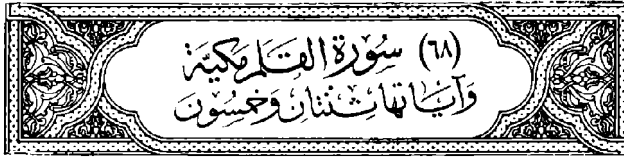 (٦٨) سُورَة القَلَم مَكيَّة
وَآيَاتهَا ثِنْتَان وَخَمسُون